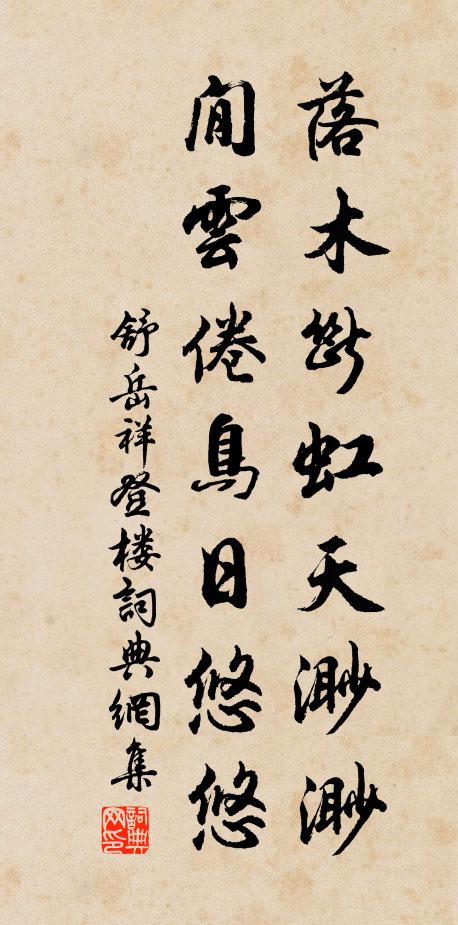 落木斷虹天渺渺
閒雲倦鳥日悠悠
舒岳祥登楼詞典網集
詞典網印